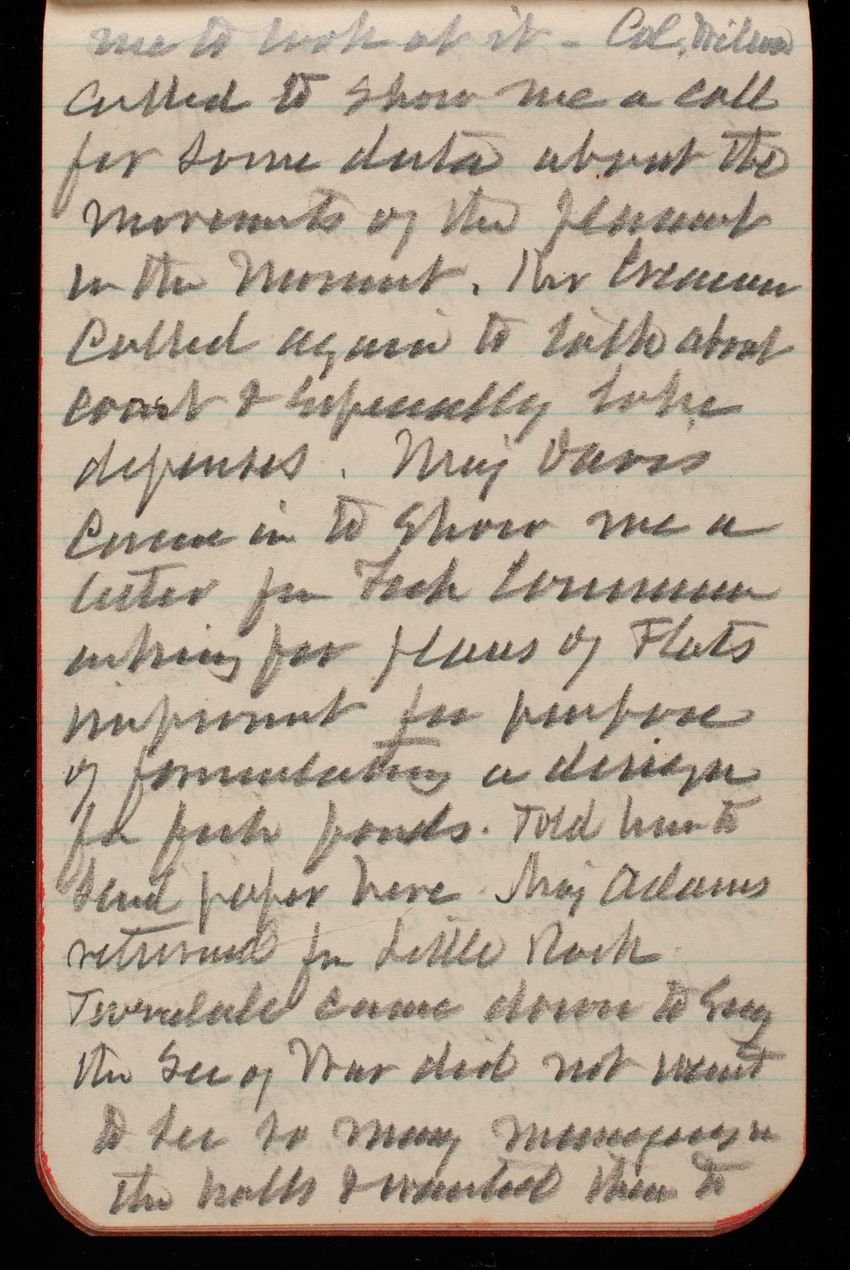 me to look at it - Col. Wilson
called to show me a call
for some data about the
movements of the
in the . Rev
called again to talk about
coast & especially lake
defenses. Maj Davis
came in to show me a
letter fm Fish Commr
asking for plans of Flats
improvmt for purpose
of formulating a design
for fish ponds. Told him to
send paper here. Maj Adams
returned fm Little Rock
Tweedale came down to say
the Sec of War did not want
to see so many messengers in
the halls & wanted them to